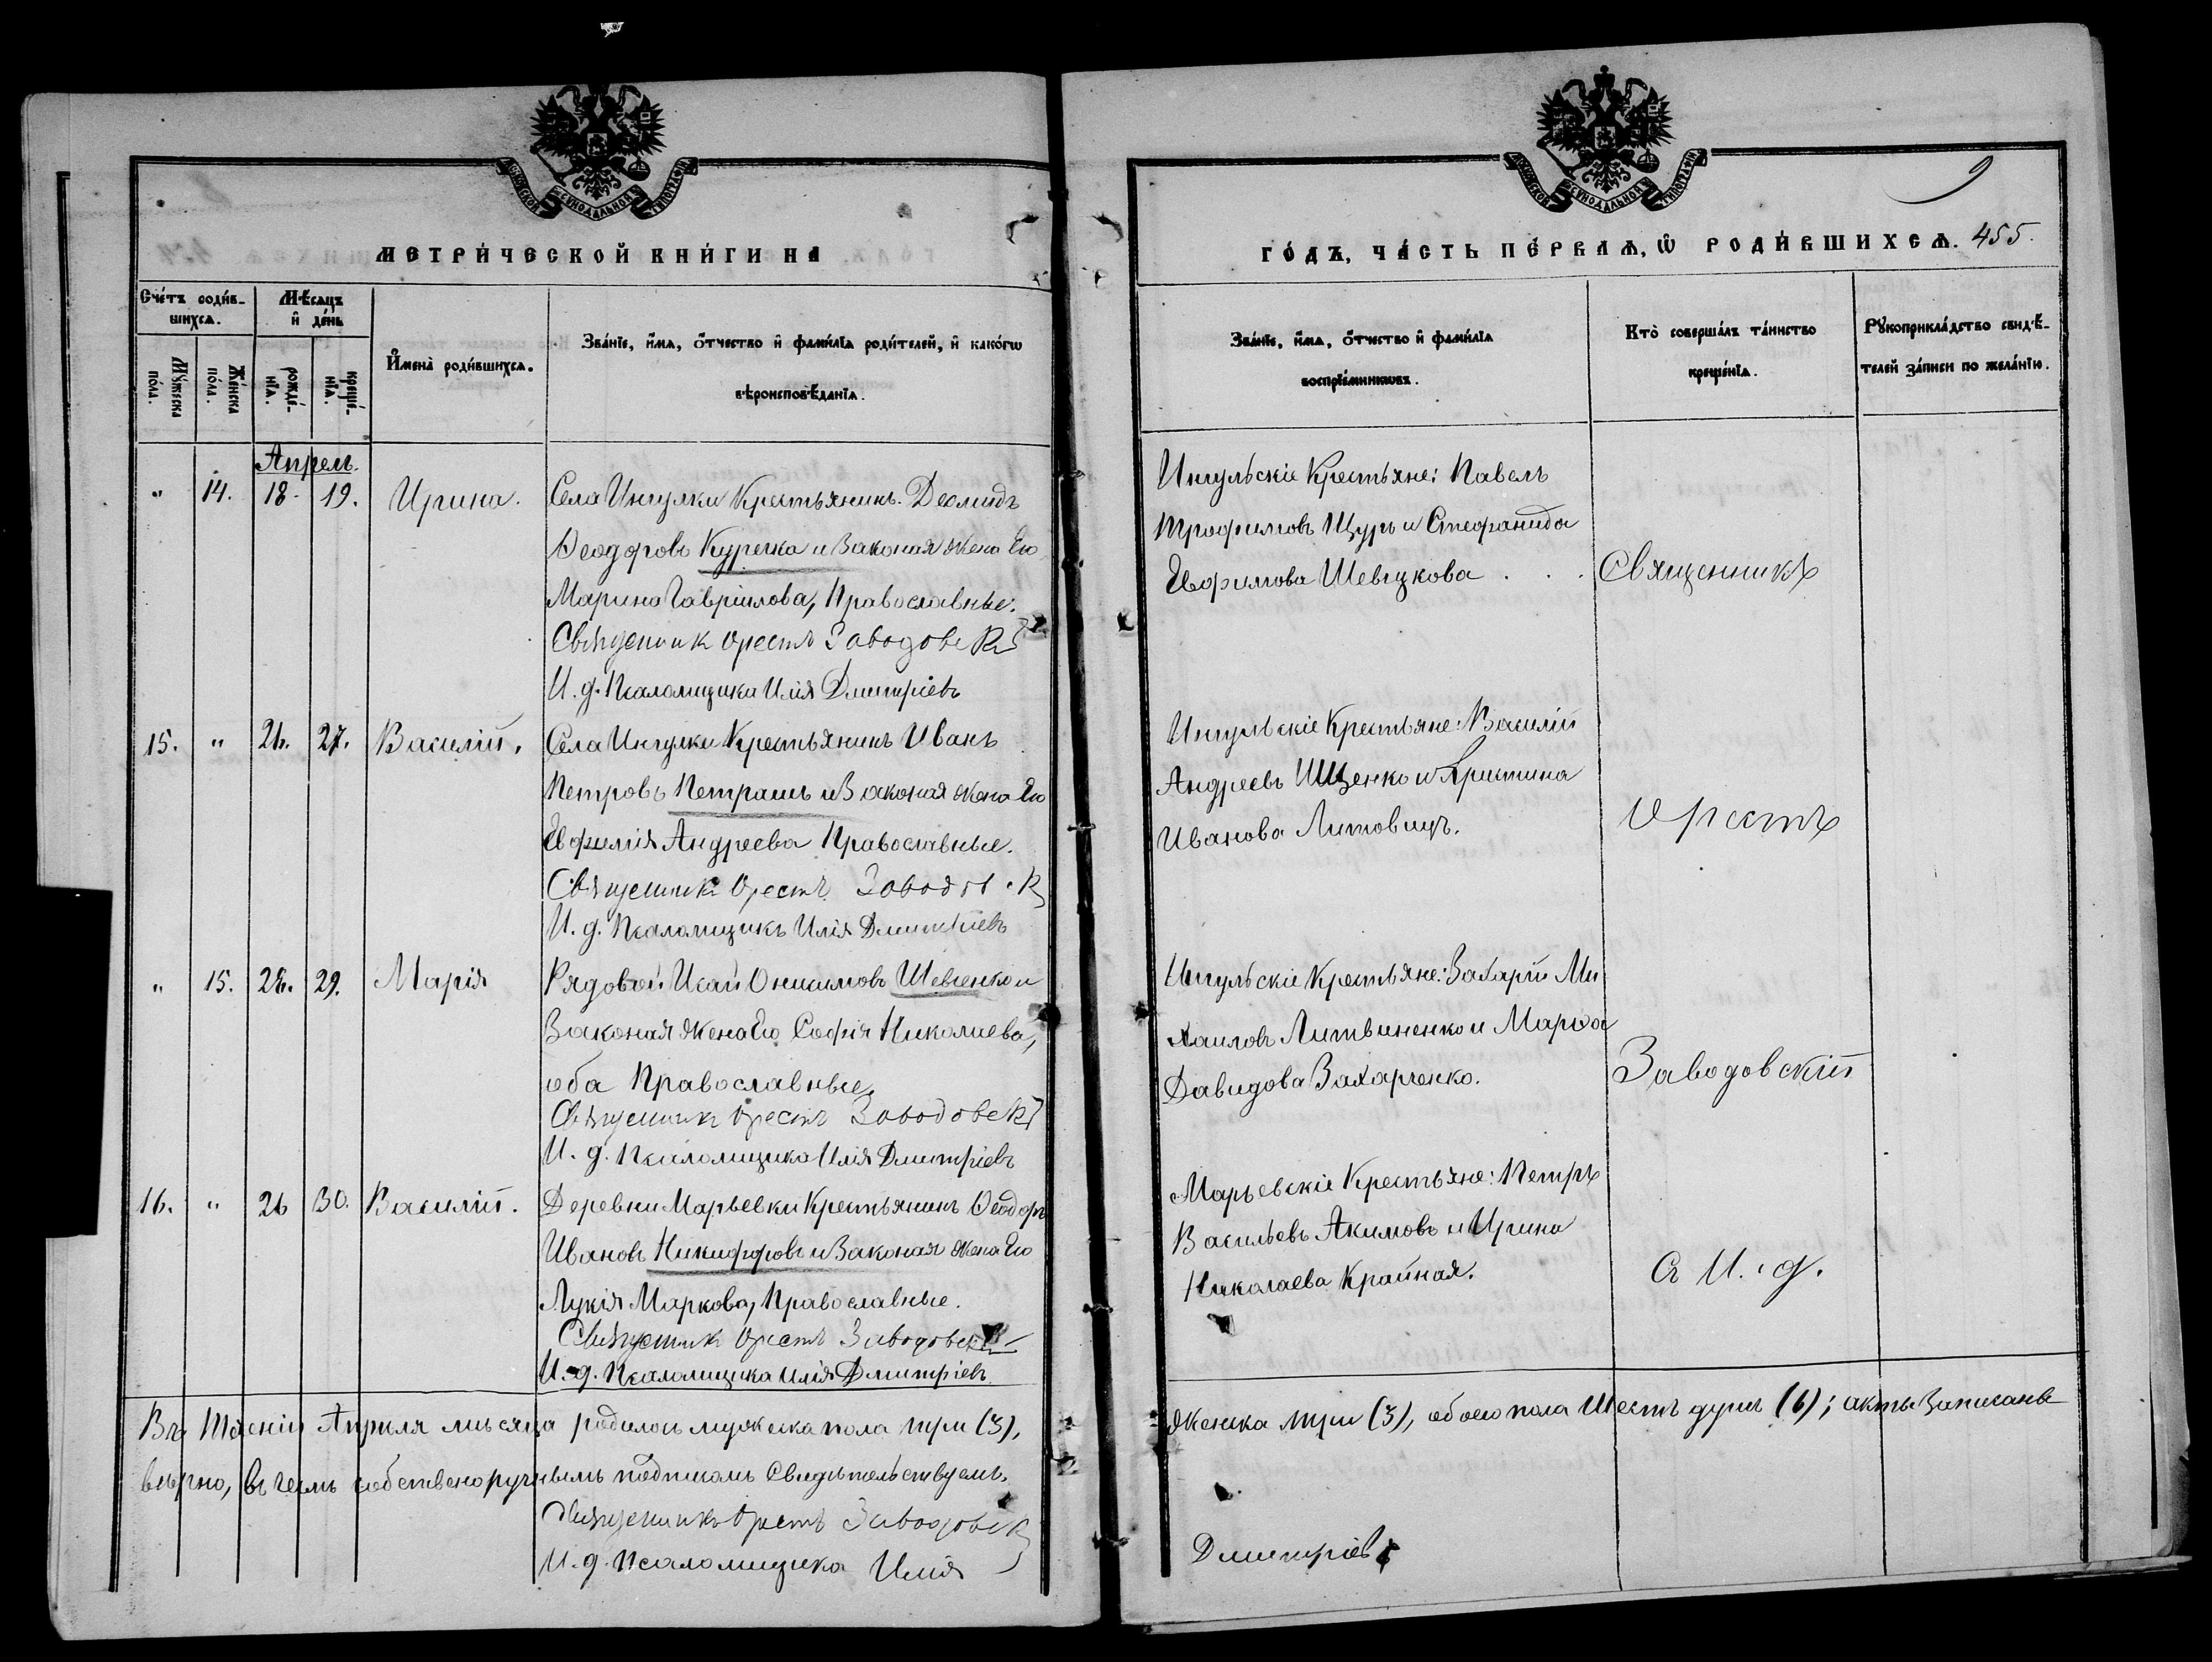 МОСКОВСКОЙ СѴНОДАЛЬНОЙ ТИПОГРАФІИ
МЕТРИ́ЧЕСКОЙ КНИ́ГИ НА
Сче́тъ роди́в-
шихсѧ.
Мѣ́сѧцъ
и҆ де́нь
Мꙋ́жеска
по́ла.
Же́нска
по́ла.
рожде́-
нїѧ.
креще́-
нїѧ.
И҆мена̀ роди́вшихсѧ.
Зва́нїе, и҆́мѧ, ѻ҆́тчество и҆ фами́лїѧ роди́телей, и҆ како́гѡ
вѣроисповѣ́данїѧ.
Апрель.
" 14. 18. 19. Ирина.
Села Ингулки Крестьянинъ Деомидъ
Ѳеодоровъ Куречка и Законая жена Его
Марина Гаврилова, Православные.
Священникъ Орестъ Заводовскій
И. д. Псаломщика Илія Дмитріевъ
15. " 26. 27. Василій.
Села Ингулки Крестьянинъ Иванъ
Петровъ Петрашъ и Законая жена Его
Евфимія Андреева Православные.
Священникъ Орестъ Заводовскій
И. д. Псаломщикъ Илія Дмитріевъ
" 15. 28. 29. Марія
Рядовой Исай Онисимовъ Шевченко и
Законая жена Его Софія Николаева,
оба Православные.
Священникъ Орестъ Заводовскій
И. д. Псаломщика Илія Дмитріевъ
16. " 26 30. Василій.
Деревни Марьевки Крестьянинъ Ѳеодоръ
Ивановъ Никифоровъ и Законая жена Его
Лукія Маркова, Православные.
Священникъ Орестъ Заводовскій
И. д. Псаломщика Илія Дмитріевъ
Въ Теченіи Апреля мѣсяца родилось мужеска пола три (3),
вѣрно, въ чемъ собственоручнымъ подписомъ Свидѣтельствуемъ.
Священникъ Орестъ Заводовскій
И. д. Псаломщика Илія
МОСКОВСКОЙ СѴНОДАЛЬНОЙ ТИПОГРАФІИ
9
ГО́ДЪ, ЧА́СТЬ ПЕ́РВАѦ, Ѽ РОДИ́ВШИХСѦ. 455.
Зва́нїе, и҆́мѧ, ѻ҆́тчество и҆ фами́лїѧ
воспрїе́мникѡвъ.
Кто̀ соверша́лъ та́инство
креще́нїѧ.
Рꙋкоприкла́дство свидѣ́-
телей за́писи по жела́нїю.
Ингульскіе Крестьяне: Павелъ
Трофимовъ Щуръ и Стефанида
Евфимова Шевцкова . . .
Священникъ
Ингульскіе Крестьяне: Василій
Андреевъ Ищенко и Христина
Иванова Литовицъ.
Орестъ
Ингульскіе Крестьяне: Захарій Ми
хаиловъ Литвиненко и Марѳа
Давидова Захарченко.
Заводовскій
Марьевскіе Крестьяне: Петръ
Васильевъ Акимовъ и Ирина
Николаева Крайная.
Съ И. д.
женска три (3), обоего пола Шесть душъ (6); акты Записаны
Дмитріевъ